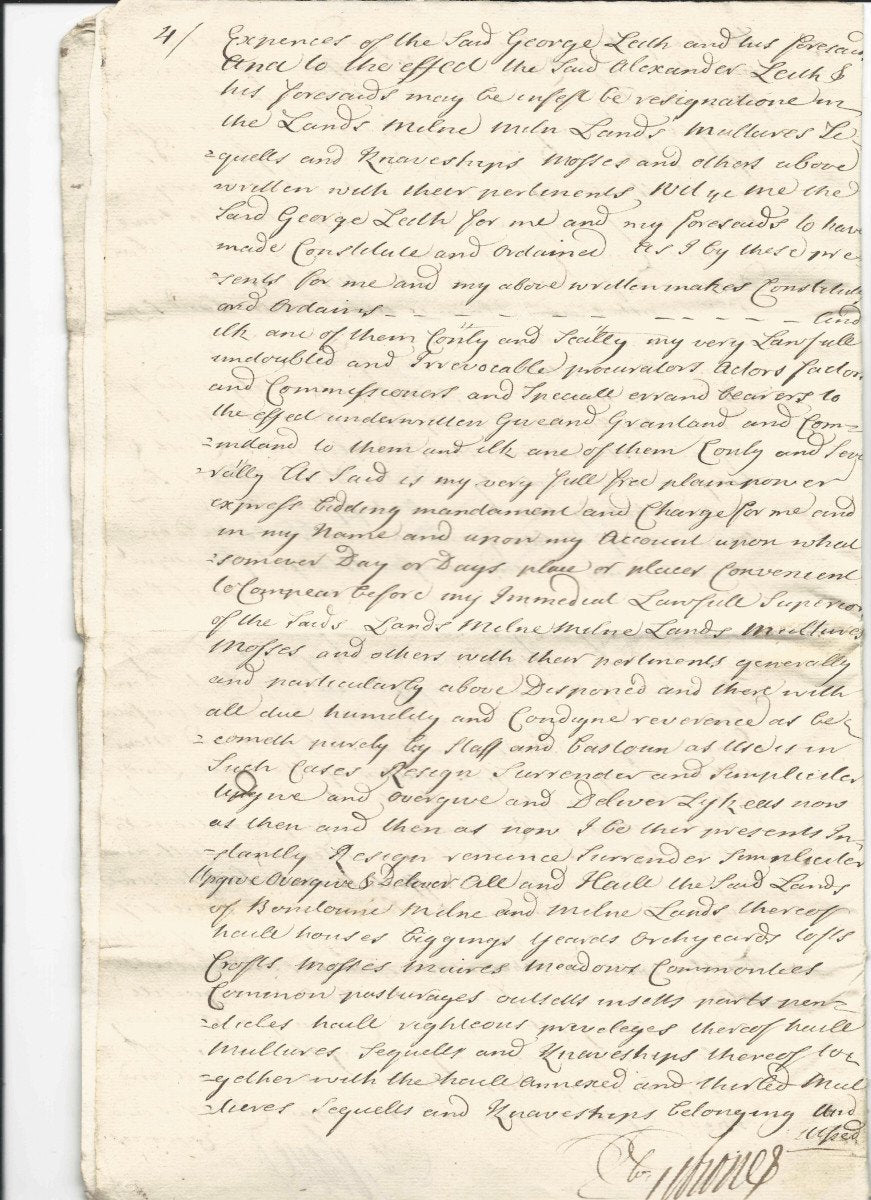 4/
Expences of the said George Leith and his foresaids
And to the effect the said Alexander Leith &
his foresaids may be infeft be resignatione in
the Lands Milne Miln Lands Multures Se-
=quells and Knaveships Mosses and others above
written with their pertinents Wit ye me the
said George Leith for me and my foresaids to have
made Constitute and Ordained As I by these pre-
=sents for me and my above written makes Constitute
and Ordains - - - - - - - - - - - and
ilk ane of them Conly and Seally my very Lawfull
undoubted and Irrevocable procurators Actors factors
and Commissioners and Speciall errand bearers to
the effect underwritten Giveand Grantand and Com=
=mitand to them and ilk ane of them Conly and Seve
=rally As Said is my very full free plain power
express bidding mandament and Charge for me and
in my Name and upon my Account upon what
=somever Day or Days place or places Convenient
to Compear before my Immediat Lawfull Superior
of the Saids Lands Milne Milne Lands Multures
Mosses and others with their pertinents generally
and particularly above Disponed and there with
all due humility and Condigne reverence as be
=cometh purely by Staff and Bastoun as Use is in
Such Cases Resign Surrender and Simpliciter
Upgive and overgive and Deliver Lykeas now
as then and then as now I be thir presents In-
=stantly Resign renunce Surrender Simpliciter
Upgive Overgive & Deliver All and Haill the Said Lands
of Milne and Milne Lands thereof
haill houses biggings yeards Orchyeards tofts
Crofts Mosses muires Meadows Commonties
Common pasturages outsetts insetts parts pen=
=dicles haill righteous priveleges thereof haill
Multures Sequells and Knaveships thereof to
=gether with the haill annexed and thirled Mul
=tures Sequells and Knaveships belonging and
Used